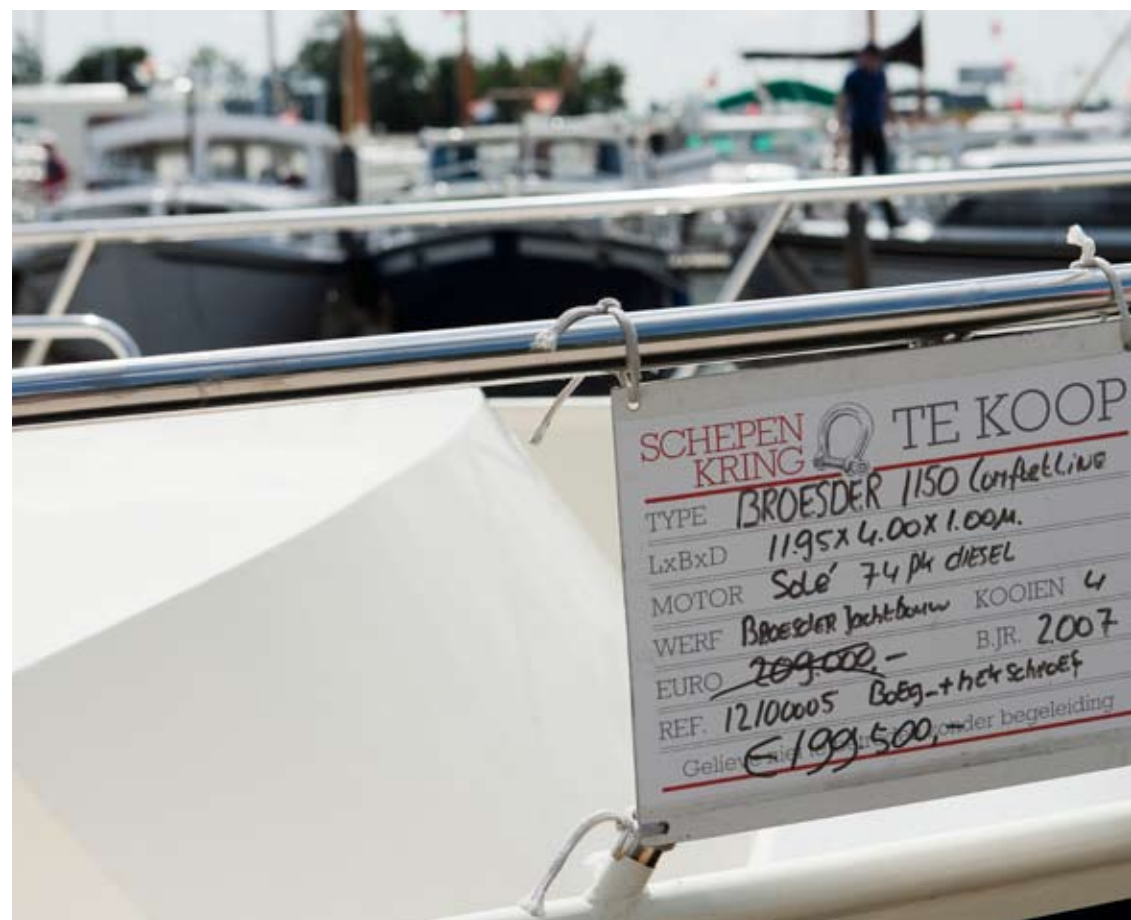 SCHEPEN
KRING
TE KOOP
TYPE BROESDER 1150 ComfortLine
LxBxD 11.95 x 4.00 x 1.00 M.
MOTOR Solé 74 pk diESEL
WERF BROESDER Jachtbouw KOOIEN 4
EURO 209.000,- B.JR. 2007
REF. 12/00005 BOEG-+hekschroef
Gelieve niet onder begeleiding
€ 199.500,-